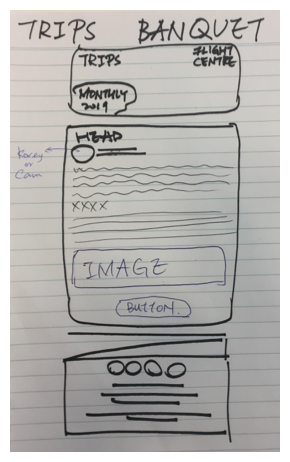 TRIPS BANQUET
TRIPS
FLIGHT
CENTRE
MONTHLY
2019
HEAD
Korey
or
Cam
XXXX
IMAGE
BUTTON.